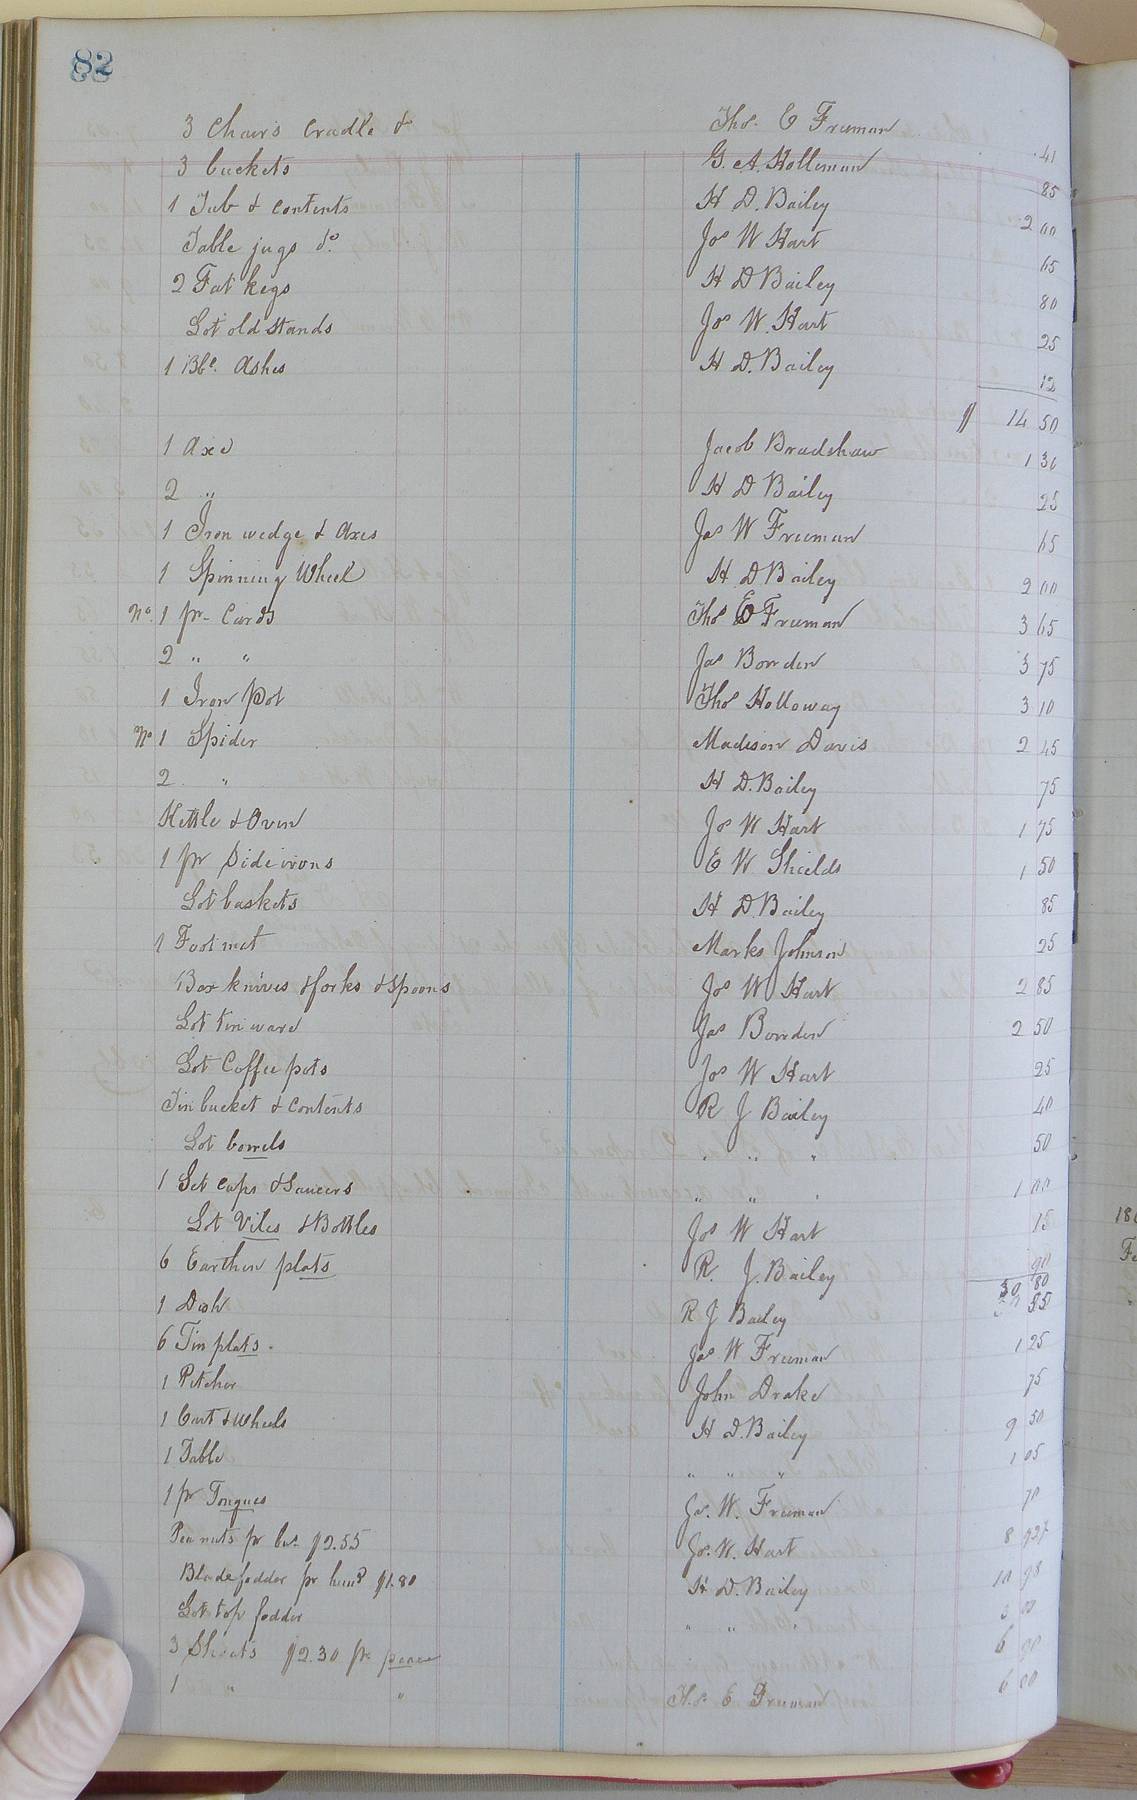 82
3 Chairs Cradle & Thos. E Freeman 41
3 buckets G. A. Holleman 85
1 Tub & contents H D. Bailey 2 00
Table jugs &c. Jos W Hart 65
2 Fat kegs H D Bailey 80
Lot old stands Jos W. Hart 25
1 Bbl. Ashes H D. Bailey 12
$ 14 50
1 Axe Jacob Bradshaw 1 30
2 " H D Bailey 25
1 Iron wedge & Axes Jas W Freeman 65
1 Spinning Wheel H D Bailey 2 00
No. 1 pr- Cards Thos E Freeman 3 65
2 " " Jas Bowden 3 75
1 Iron Pot Thos Holloway 3 10
No 1 Spider Madison Davis 2 45
2 " H D. Bailey 75
Kettle & Oven Jos W Hart 1 75
1 pr Side irons E W Shields 1 50
Lot baskets H D. Bailey 85
1 Foot mat Marks Johnson 25
Box knives & forks & Spoons Jos W Hart 2 85
Lot tin ware Jas Bowden 2 50
Lot Coffee pots Jos W Hart 25
Tin bucket & contents R J Bailey 40
Lot bowels " " " 50
1 Set cups & Saucers " " " 1 00
Lot Viles & Bottles Jos W Hart 15
6 Earthen plats R. J. Bailey 90
30 80
1 Dish R J Bailey 55
6 Tin plats. Jas W Freeman 1 25
1 Pitcher John Drake 75
1 Cart & Wheels H D. Bailey 9 50
1 Table " " " 1 05
1 pr Tongues Jas. W. Freeman 70
Pea nuts pr bus $2.55 Jos. W. Hart 8 92½
Blade fodder pr hund $1.80 H D. Bailey 10 98
Lot top fodder " " " 3 00
3 Shoats $2.30 pr peace 6 90
1 " " Thos. E Freeman 6 00